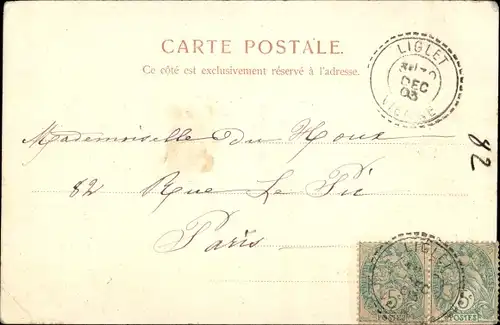 CARTE POSTALE.
Ce côté est exclusivement réservé à l'adresse.
LIGLET
DEC
03
VIENNE
82
Mademoiselle du Houx
82 Rue Le Pic
Paris
LIGLET
5c 5c
POSTES POSTES